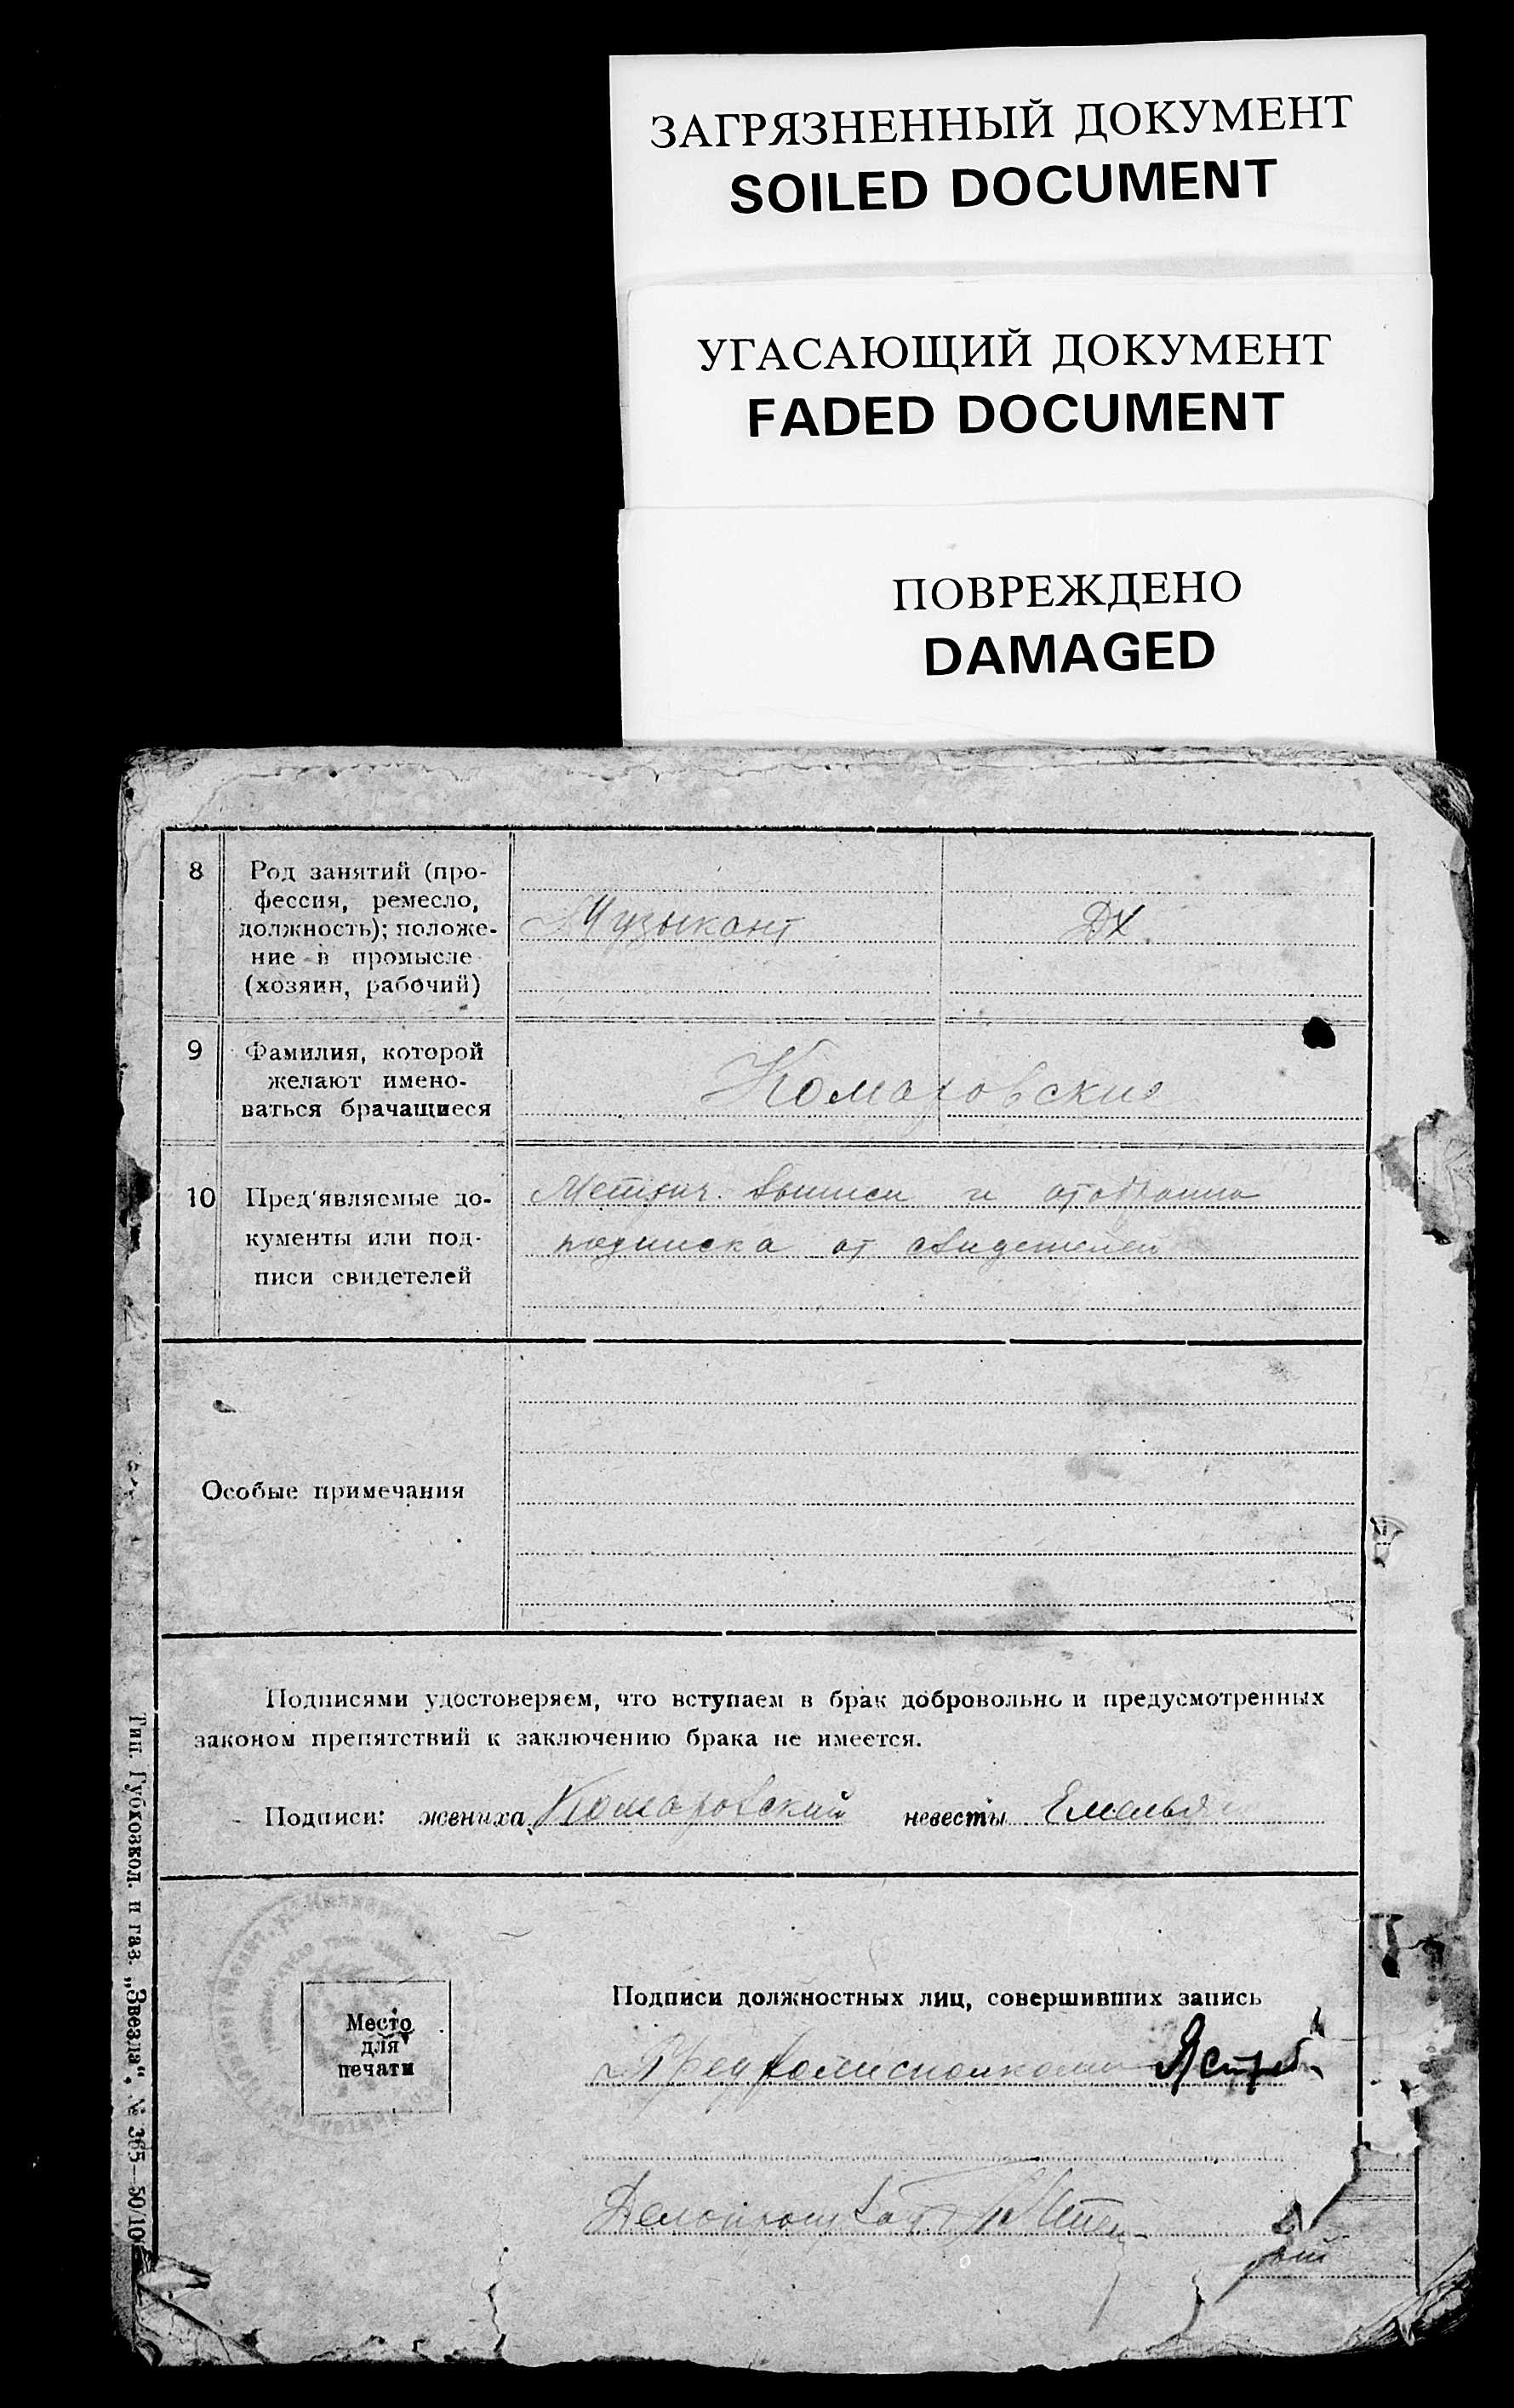 ЗАГРЯЗНЕННЫЙ ДОКУМЕНТ
SOILED DOCUMENT
УГАСАЮЩИЙ ДОКУМЕНТ
FADED DOCUMENT
ПОВРЕЖДЕНО
DAMAGED
8
Род занятий (про-
фессия, ремесло,
должность); положе-
ние в промысле
(хозяин, рабочий)
Музыкант
ДХ.
9
Фамилия, которой
желают имено-
ваться брачащиеся
Комаровские
10
Пред'являемые до-
кументы или под-
писи свидетелей
Метрич. выписи и отобрана
подписка от свидетелей
Особые примечания
Подписями удостоверяем, что вступаем в брак добровольно и предусмотренных
законом препятствий к заключению брака не имеется.
Подписи: жениха Комаровский невесты
Место
для
печати
Подписи должностных лиц, совершивших запись
Предволисполкома
Делопроизвод.
Тип. Губковкол. и газ. „Звезда", № 365—50/10